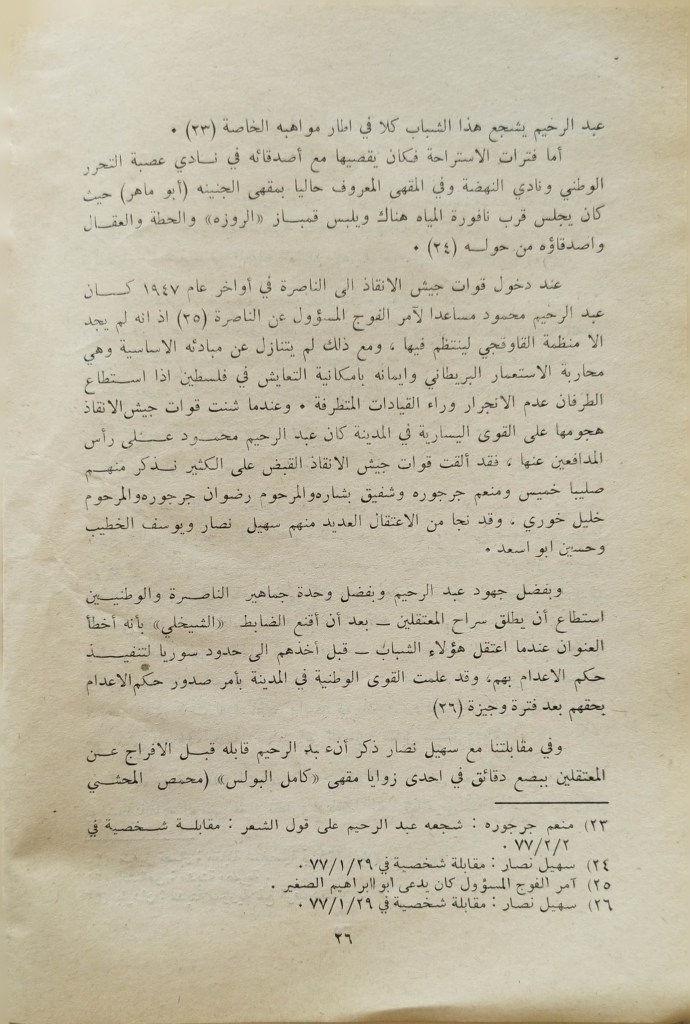 عبد الرحيم يشجع هذا الشباب كلا في اطار مواهبه الخاصة (٢٣) ٠
أما فترات الاستراحة فكان يقضيها مع أصدقائه في نـادي عصبة التحرر
الوطني ونادي النهضة وفي المقهى المعروف حاليا بمقهى الجنينه (أبو ماهر) حيث
كان يجلس قرب نافورة المياه هناك ويلبس قمبـاز «الروزه» والحطة والعقـال
واصدقاؤه من حولـه (٢٤) ٠
عند دخول قوات جيش الانقاذ الى الناصرة في أواخر عام ١٩٤٧ كـان
عبد الرحيم محمود مساعدا لآمر الفوج المسؤول عن الناصرة (٢٥) اذ انه لم يجد
الا منظمة القاوقجي لينتظم فيها ، ومع ذلك لم يتنازل عن مبادئه الاساسية وهي
محاربة الاستعمار البريطاني وايمانه بامكانية التعايش في فلسطين اذا استطاع
الطرفان عدم الانجرار وراء القيادات المتطرفة ٠ وعندما شنت قوات جيش الانقاذ
هجومها على القوى اليسارية في المدينة كان عبد الرحيم محمـود عـلى رأس
المدافعين عنها ، فقد ألقت قوات جيش الانقاذ القبض على الكثير نـذكر منهـم
صليبا خميس ومنعم جرجوره وشفيق بشاره والمرحوم رضوان جرجوره والمرحوم
خليل خوري . وقد نجا من الاعتقال العديد منهم سهيل نصار ويوسف الخطيب
وحسين ابو اسعد ٠
وبفضل جهود عبد الرحيم وبفضل وحدة جماهير الناصرة والوطنيـين
استطاع أن يطلق سراح المعتقلين ـ بعد أن أقنع الضابط «الشيخلي» بأنه أخطأ
العنوان عندما اعتقل هؤلاء الشباب ـ قبل أخذهم الى حدود سوريا لتنفيـذ
حكم الاعدام بهم، وقد علمت القوى الوطنية في المدينة بأمر صدور حكم الاعدام
بحقهم بعد فترة وجيزة (٢٦)
وفي مقابلتنا مع سهيل نصار ذكر أن عبد الرحيم قابله قبـل الافراج عـن
المعتقلين ببضع دقائق في احدى زوايا مقهى «كامل البولس» (محمص المحثـي
٢٣) منعم جرجوره : شجعه عبد الرحيم على قول الشعر : مقابلـة شـخصية في
٧٧/٢/٢ ٠
٢٤) سهيل نصار : مقابلة شخصية في ٧٧/١/٢٩ ٠
٢٥) آمر الفوج المسؤول كان يدعى ابو ابراهيم الصغير .
٢٦) سهيل نصار : مقابلة شخصية في ٧٧/١/٢٩ ٠
٣٦